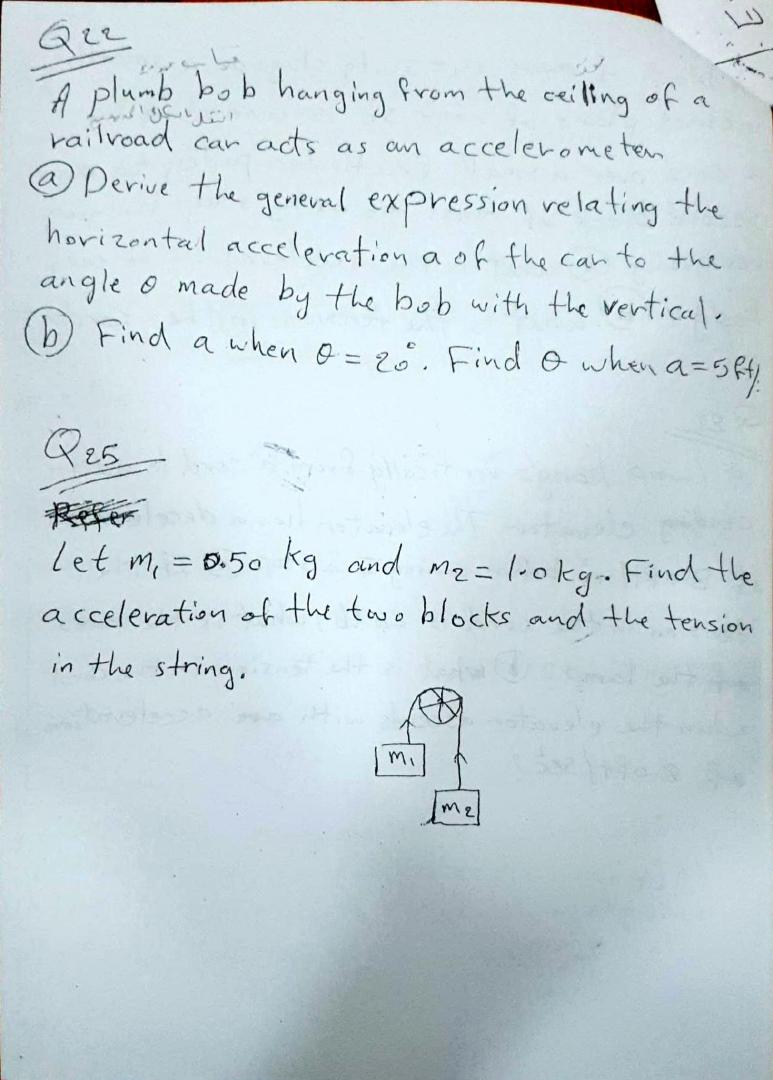 Q22
A plumb bob hanging from the ceiling of a
railroad car acts as an accelerometer
(a) Derive the general expression relating the
horizontal acceleration a of the car to the
angle θ made by the bob with the vertical.
(b) Find a when θ = 20°. Find θ when a=5ft/
Q25
Refer
Let m₁ = 0.50 kg and m₂ = 1.0 kg. Find the
acceleration of the two blocks and the tension
in the string.
m₁
m₂